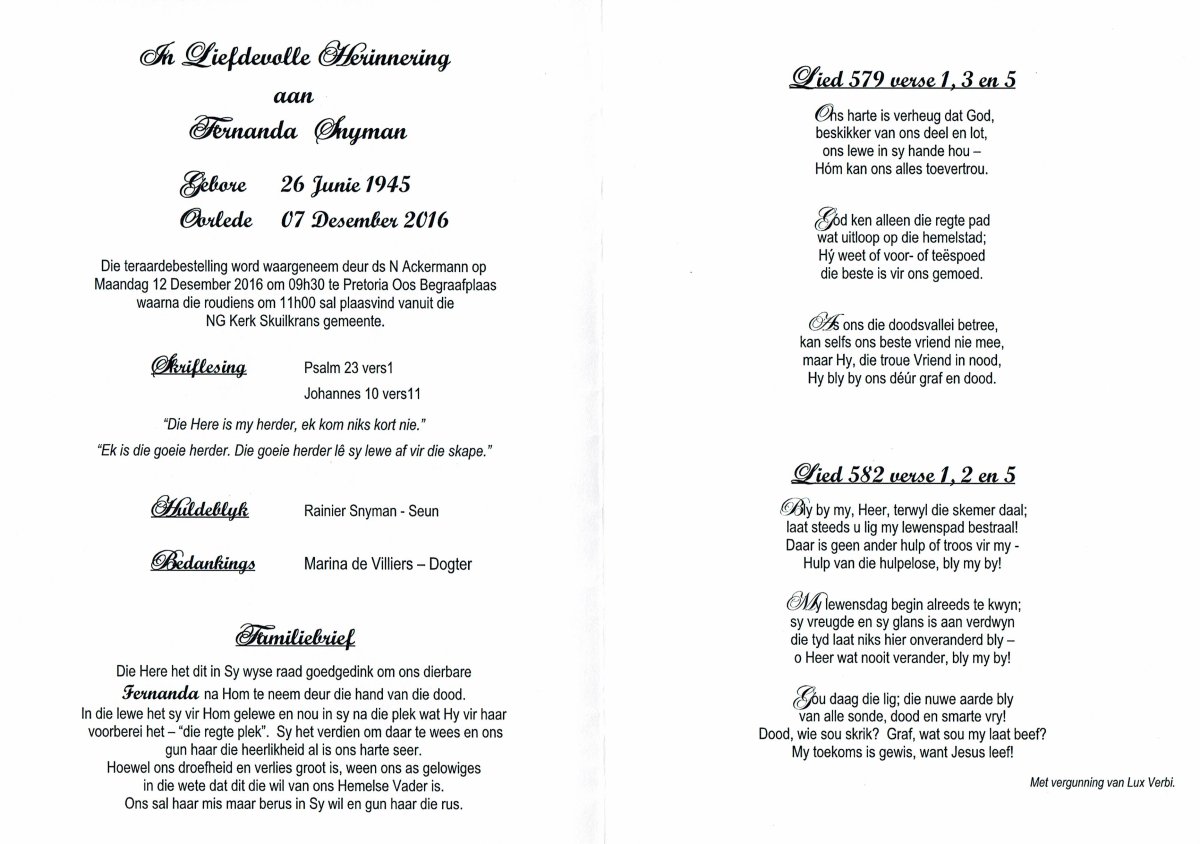 In Liefdevolle Herinnering
aan
Fernanda Snyman
Gebore 26 Junie 1945
Oorlede 07 Desember 2016
Die teraardebestelling word waargeneem deur ds N Ackermann op
Maandag 12 Desember 2016 om 09h30 te Pretoria Oos Begraafplaas
waarna die roudiens om 11h00 sal plaasvind vanuit die
NG Kerk Skuilkrans gemeente.
Skriflesing Psalm 23 vers1
Johannes 10 vers11
“Die Here is my herder, ek kom niks kort nie.”
“Ek is die goeie herder. Die goeie herder lê sy lewe af vir die skape.”
Huldeblyk Rainier Snyman - Seun
Bedankings Marina de Villiers – Dogter
Familiebrief
Die Here het dit in Sy wyse raad goedgedink om ons dierbare
Fernanda na Hom te neem deur die hand van die dood.
In die lewe het sy vir Hom gelewe en nou in sy na die plek wat Hy vir haar
voorberei het – “die regte plek”. Sy het verdien om daar te wees en ons
gun haar die heerlikheid al is ons harte seer.
Hoewel ons droefheid en verlies groot is, ween ons as gelowiges
in die wete dat dit die wil van ons Hemelse Vader is.
Ons sal haar mis maar berus in Sy wil en gun haar die rus.
Lied 579 verse 1, 3 en 5
Ons harte is verheug dat God,
beskikker van ons deel en lot,
ons lewe in sy hande hou –
Hóm kan ons alles toevertrou.
God ken alleen die regte pad
wat uitloop op die hemelstad;
Hý weet of voor- of teëspoed
die beste is vir ons gemoed.
As ons die doodsvallei betree,
kan selfs ons beste vriend nie mee,
maar Hy, die troue Vriend in nood,
Hy bly by ons déúr graf en dood.
Lied 582 verse 1, 2 en 5
Bly by my, Heer, terwyl die skemer daal;
laat steeds u lig my lewenspad bestraal!
Daar is geen ander hulp of troos vir my -
Hulp van die hulpelose, bly my by!
My lewensdag begin alreeds te kwyn;
sy vreugde en sy glans is aan verdwyn
die tyd laat niks hier onveranderd bly –
o Heer wat nooit verander, bly my by!
Gou daag die lig; die nuwe aarde bly
van alle sonde, dood en smarte vry!
Dood, wie sou skrik? Graf, wat sou my laat beef?
My toekoms is gewis, want Jesus leef!
Met vergunning van Lux Verbi.